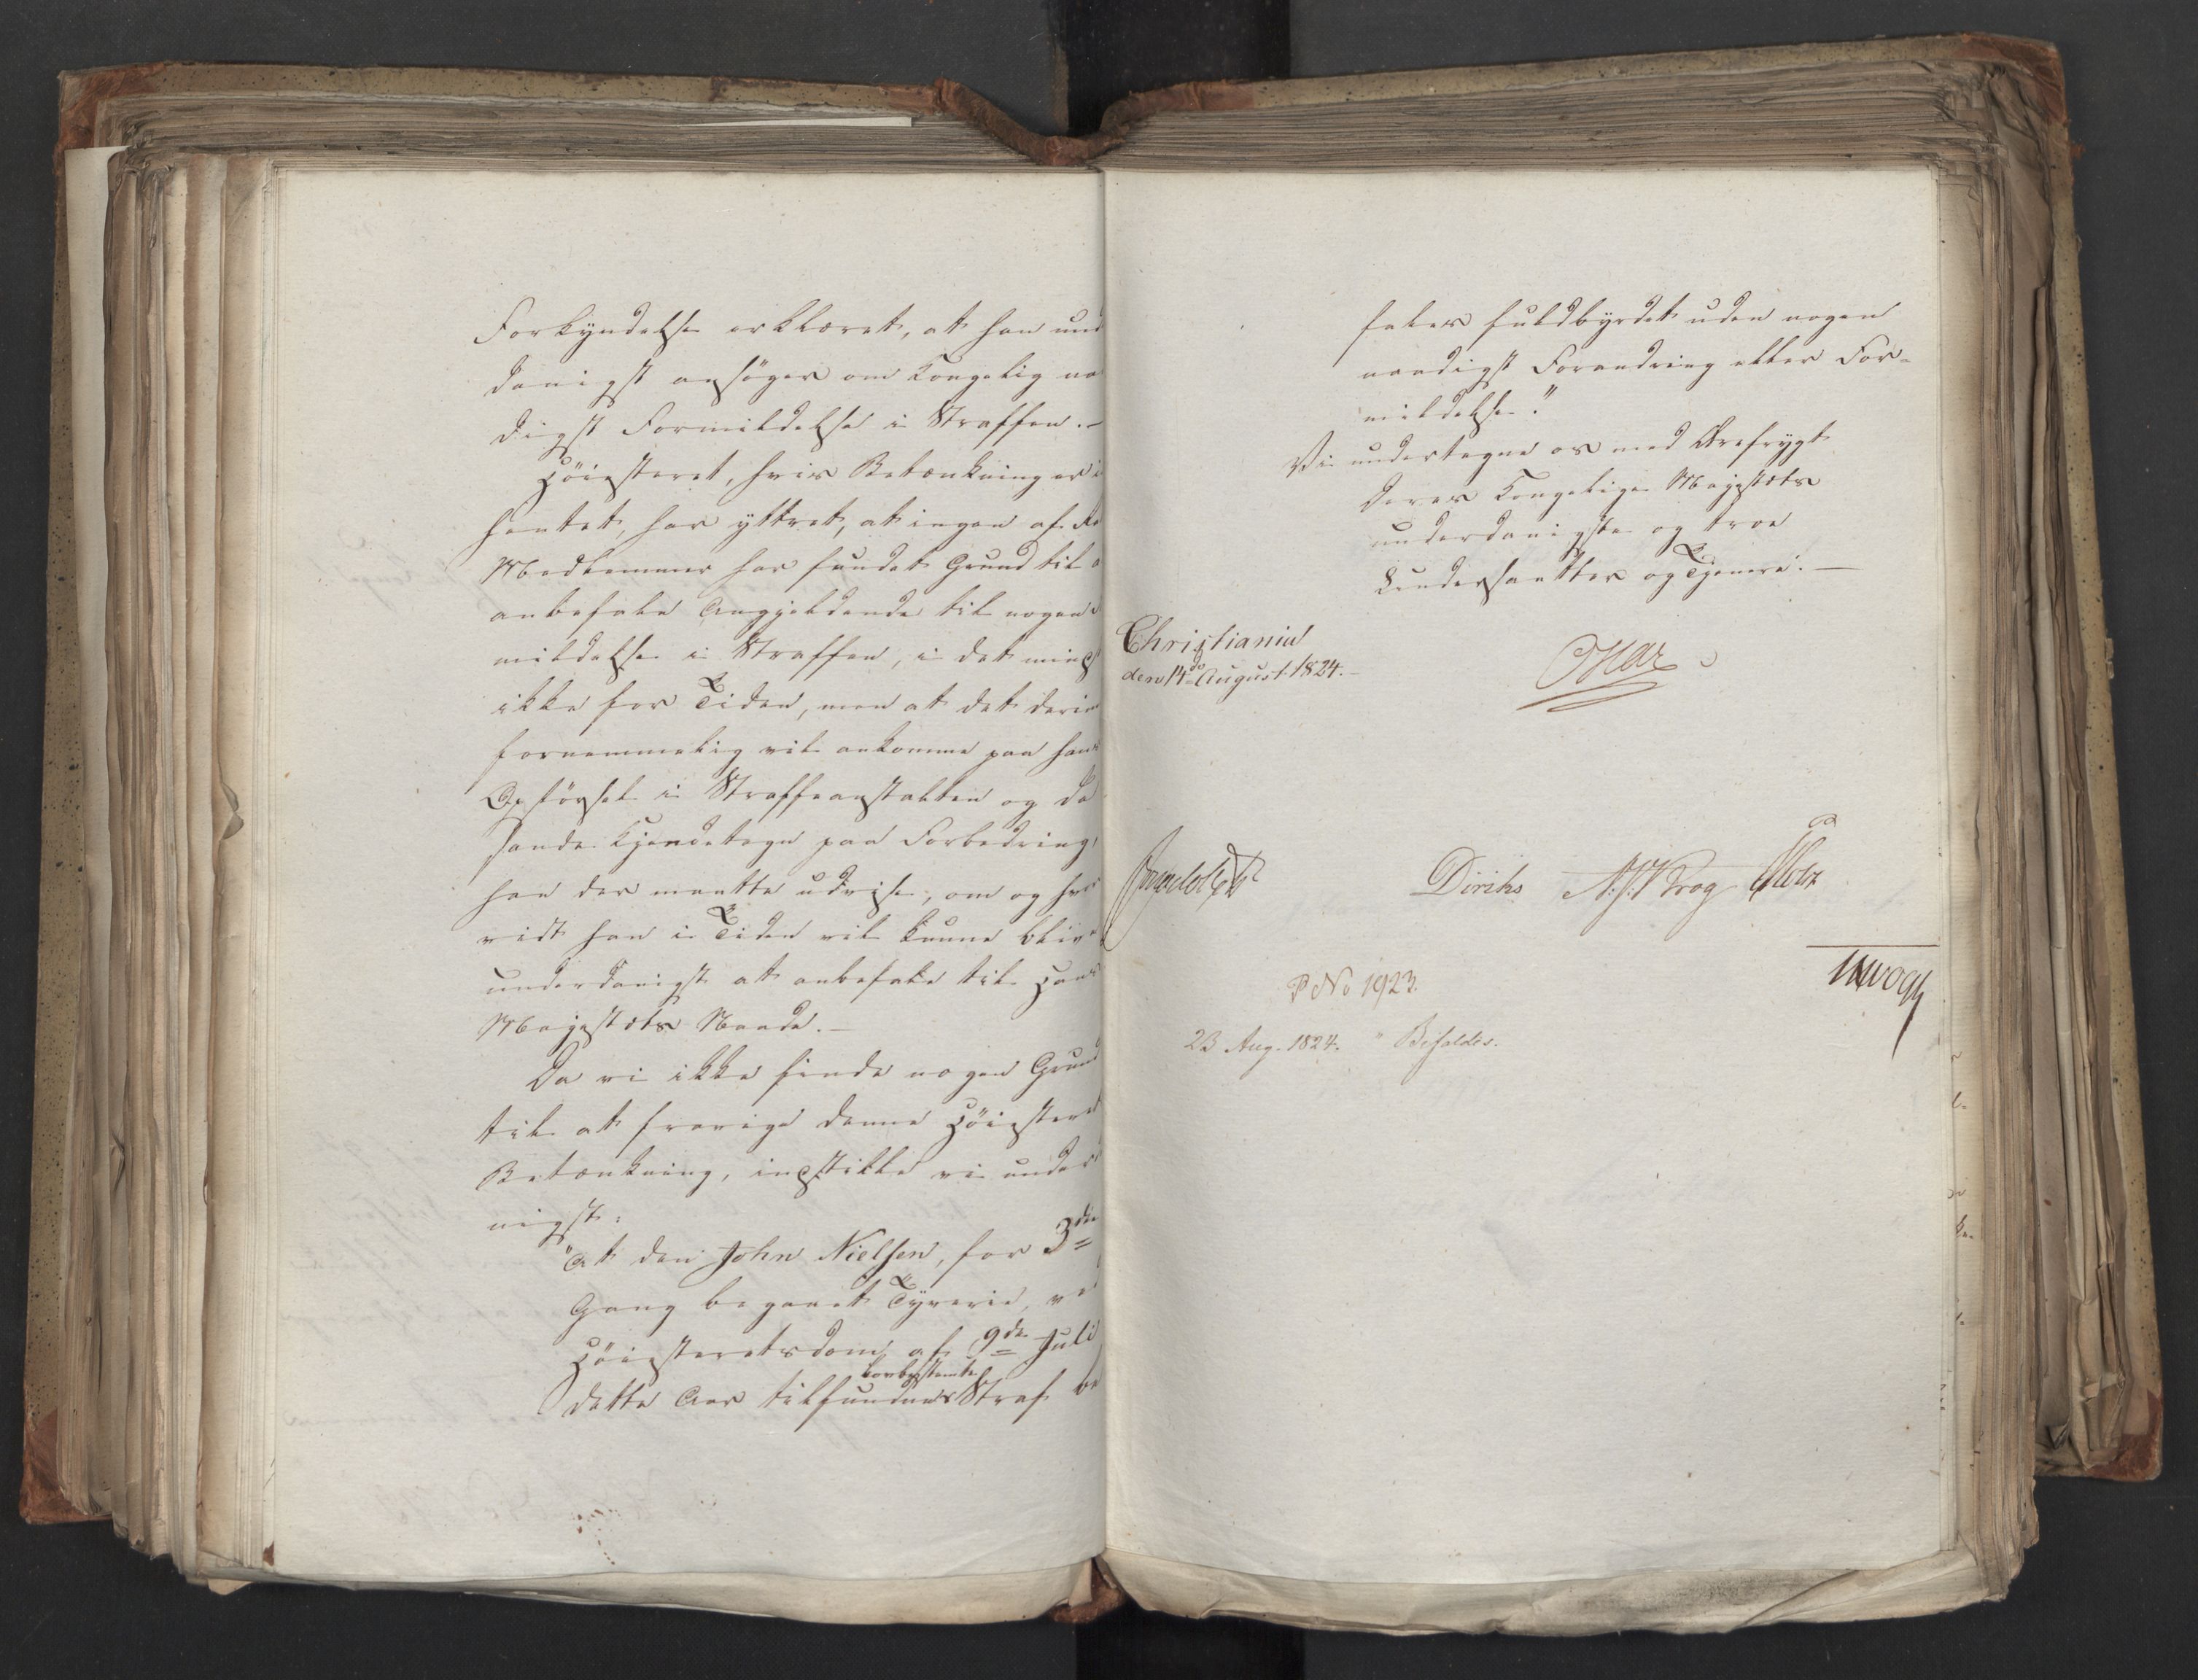 Forkyndelse erklæret, at han und
danigst ansøger om Kongelig na
digst Formildelse i Straffen.-
Høiesteret, hvis Betænkning er i
hentet, har yttret, at ingen af de
Medlemmer har fundet Grund til a
anbefale Angjeldende til nogen
mildelse i Straffen, i det mindst
ikke for Tiden, men at det derim
fornemmelig vil ankomme paa hans
Opførsel i Straffeanstalten og de
sande Kjendetegn paa Forbedring,
han der maatte udvise, om og hvor
vidt han i Tiden vil kunne blive
underdanigst at anbefale til Hans
Majestæts Naade.-
Da vi ikke finde nogen Grund
til at fravige denne Høiesteret
Betænkning, indstille vi underd
nigst:
"At den John Nielsen, for 3die
Gang begaaet Tyverie, ved
Høiesteretsdom af 9de Juli
lovbestemte
dette Aar tilfundne Straf be
fales fuldbyrdet uden nogen
naadigst Forandring eller For-
mildelse."
Vi undertegne os med Ærefrygt
Deres Kongelige Majestæts
underdanigste og troe
Undersaatter og Tjenere.-
Christiania
den 14de August 1824.-
Diriks Krog
P No 1923.
23 Aug. 1824. " Bifaldes.